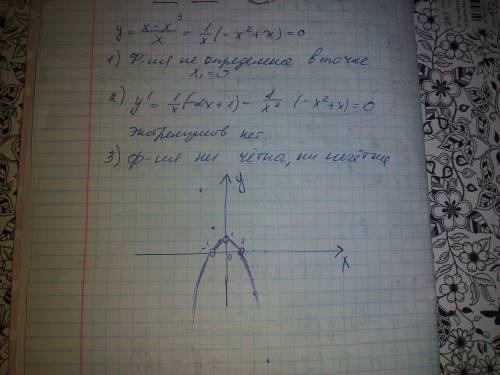 y = x-x³/x = 1/x (-x²+x) = 0
1) Ф-ия не определена в точке
x₁ = 0
2) y' = 1/x (-2x+1) - 1/x² (-x²+x) = 0
Экстремумов нет.
3) ф-ия ни чётна, ни нечётна
y
-1 1 1
0 x